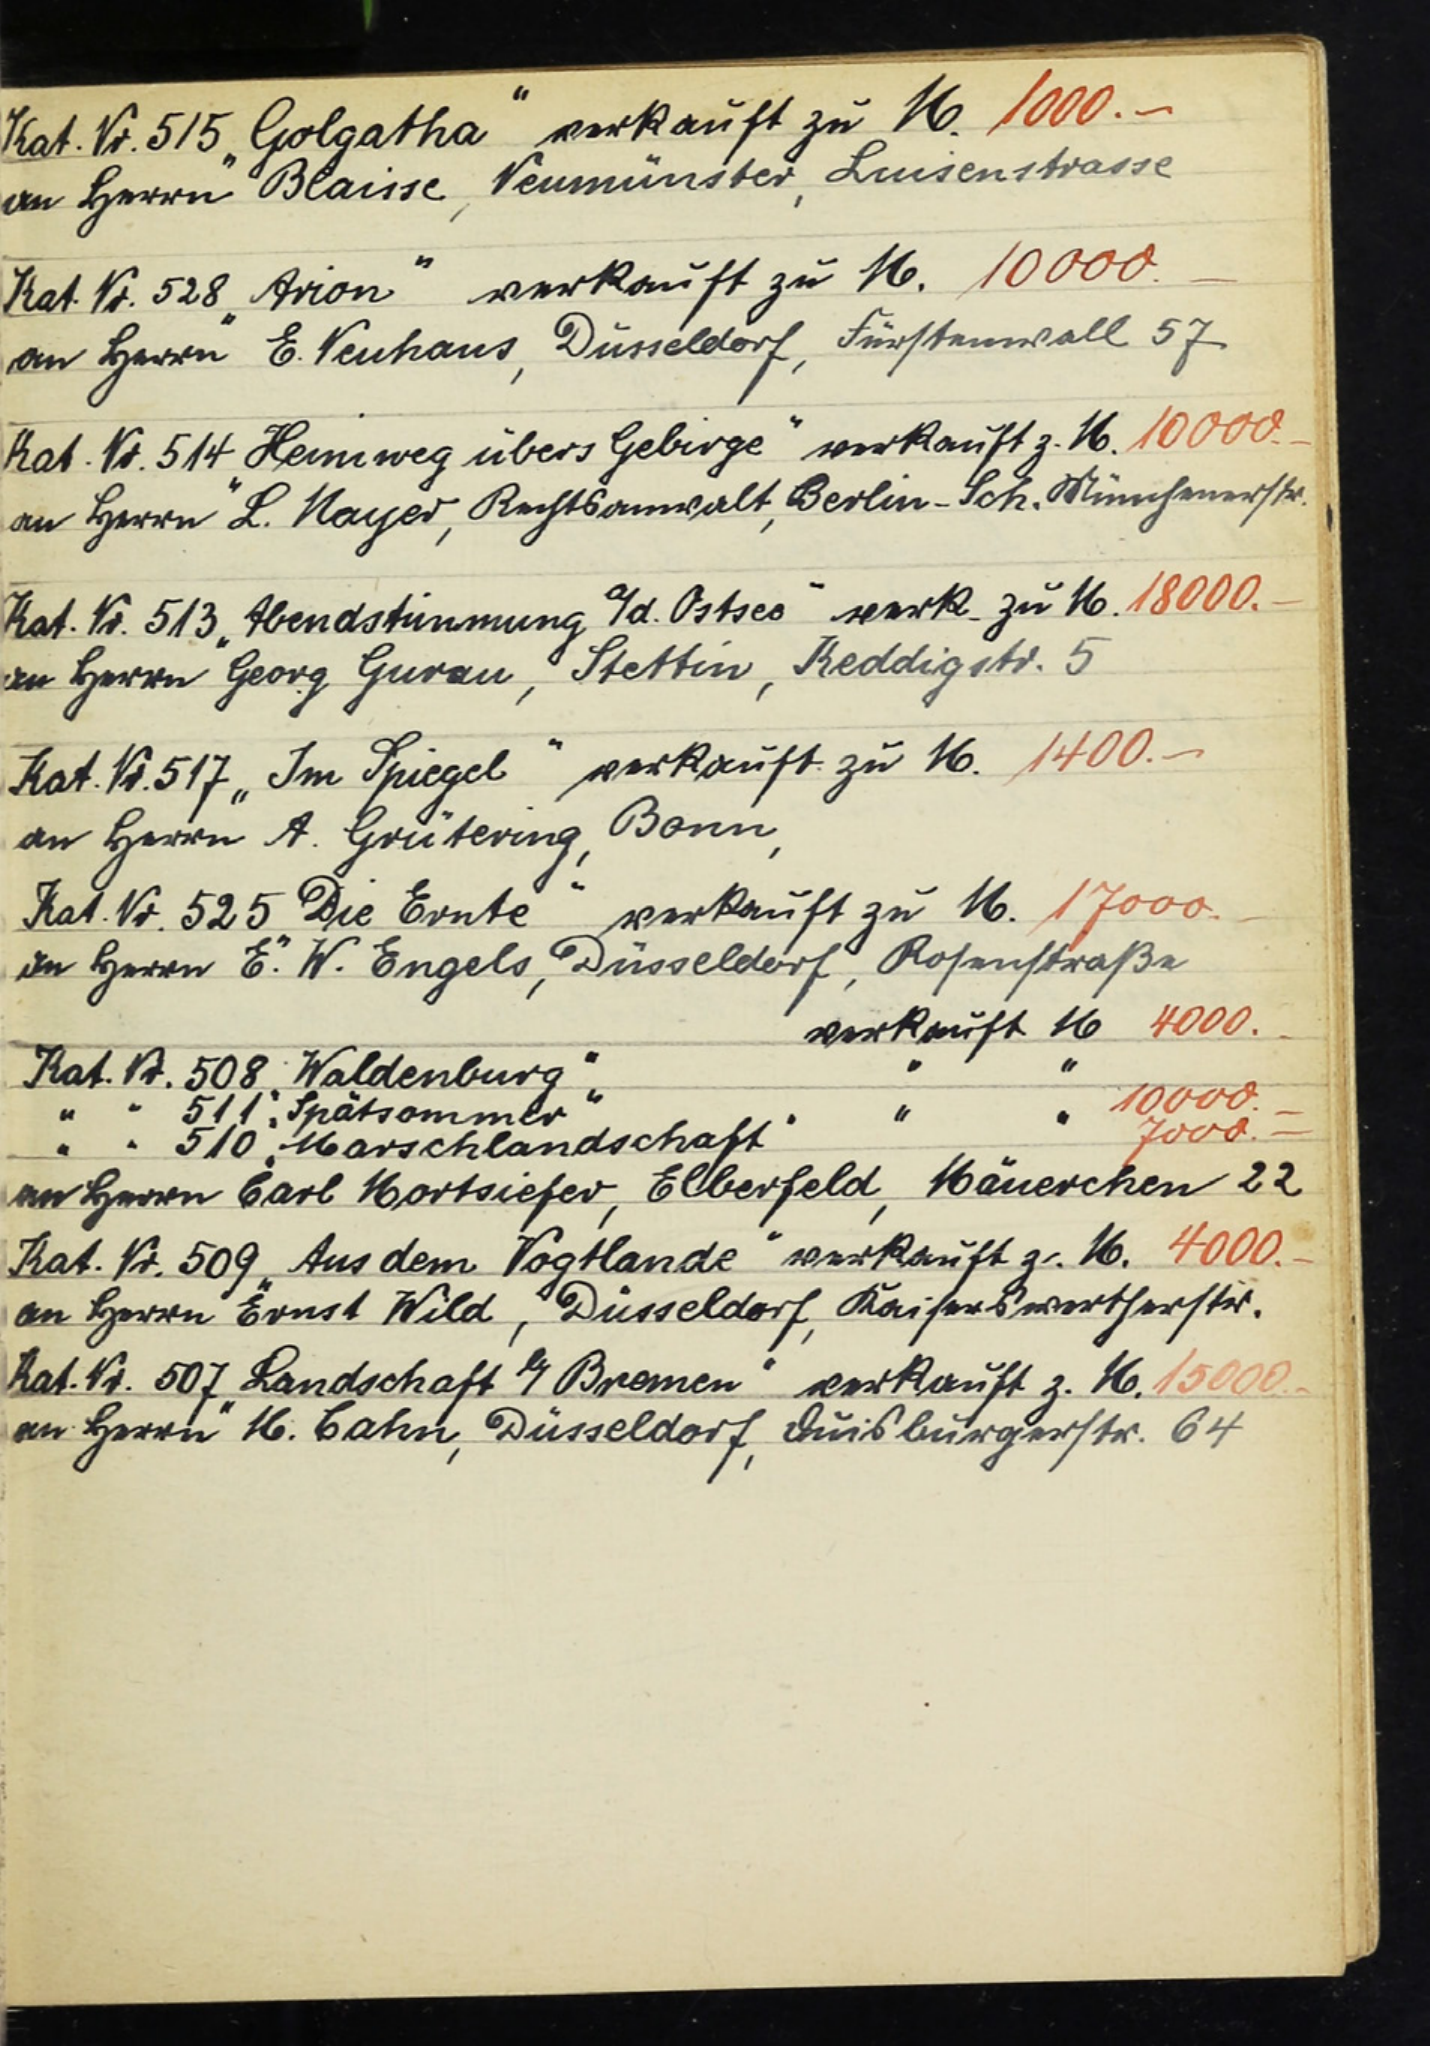 Kat. Nr. 515 „Golgatha“ verkauft zu M. 1000.—
an Herrn Blaisse, Neumünster, Luisenstrasse
Kat. Nr. 528 „Arion“ verkauft zu M. 10000.—
an Herrn E. Neuhaus, Düsseldorf, Fürstenwall 57
Kat. Nr. 514 „Heimweg übers Gebirge“ verkauft z. M. 10000.—
an Herrn L. Mayer, Rechtsanwalt, Berlin-Sch. Münchenerstr.
Kat. Nr. 513 „Abendstimmung a/d. Ostsee“ verk. zu M. 18000.—
an Herrn Georg Gurau, Stettin, Keddigstr. 5
Kat. Nr. 517 „Im Spiegel“ verkauft zu M. 1400.—
an Herrn A. Grütering, Bonn,
Kat. Nr. 525 „Die Ernte“ verkauft zu M. 17000.—
an Herrn E. W. Engels, Düsseldorf, Rosenstraße
verkauft M 4000.—
Kat. Nr. 508 „Waldenburg“ " "
" " 511 „Spätsommer“ " " 10000.—
" " 510 „Marschlandschaft“ 7000.—
an Herrn Carl Mortsiefer, Elberfeld, Mäuerchen 22
Kat. Nr. 509 „Aus dem Vogtlande“ verkauft z. M. 4000.—
an Herrn Ernst Wild, Düsseldorf, Kaiserswertherstr.
Kat. Nr. 507 „Landschaft b/ Bremen“ verkauft z. M. 15000.—
an Herrn M. Cahn, Düsseldorf, Duisburgerstr. 64